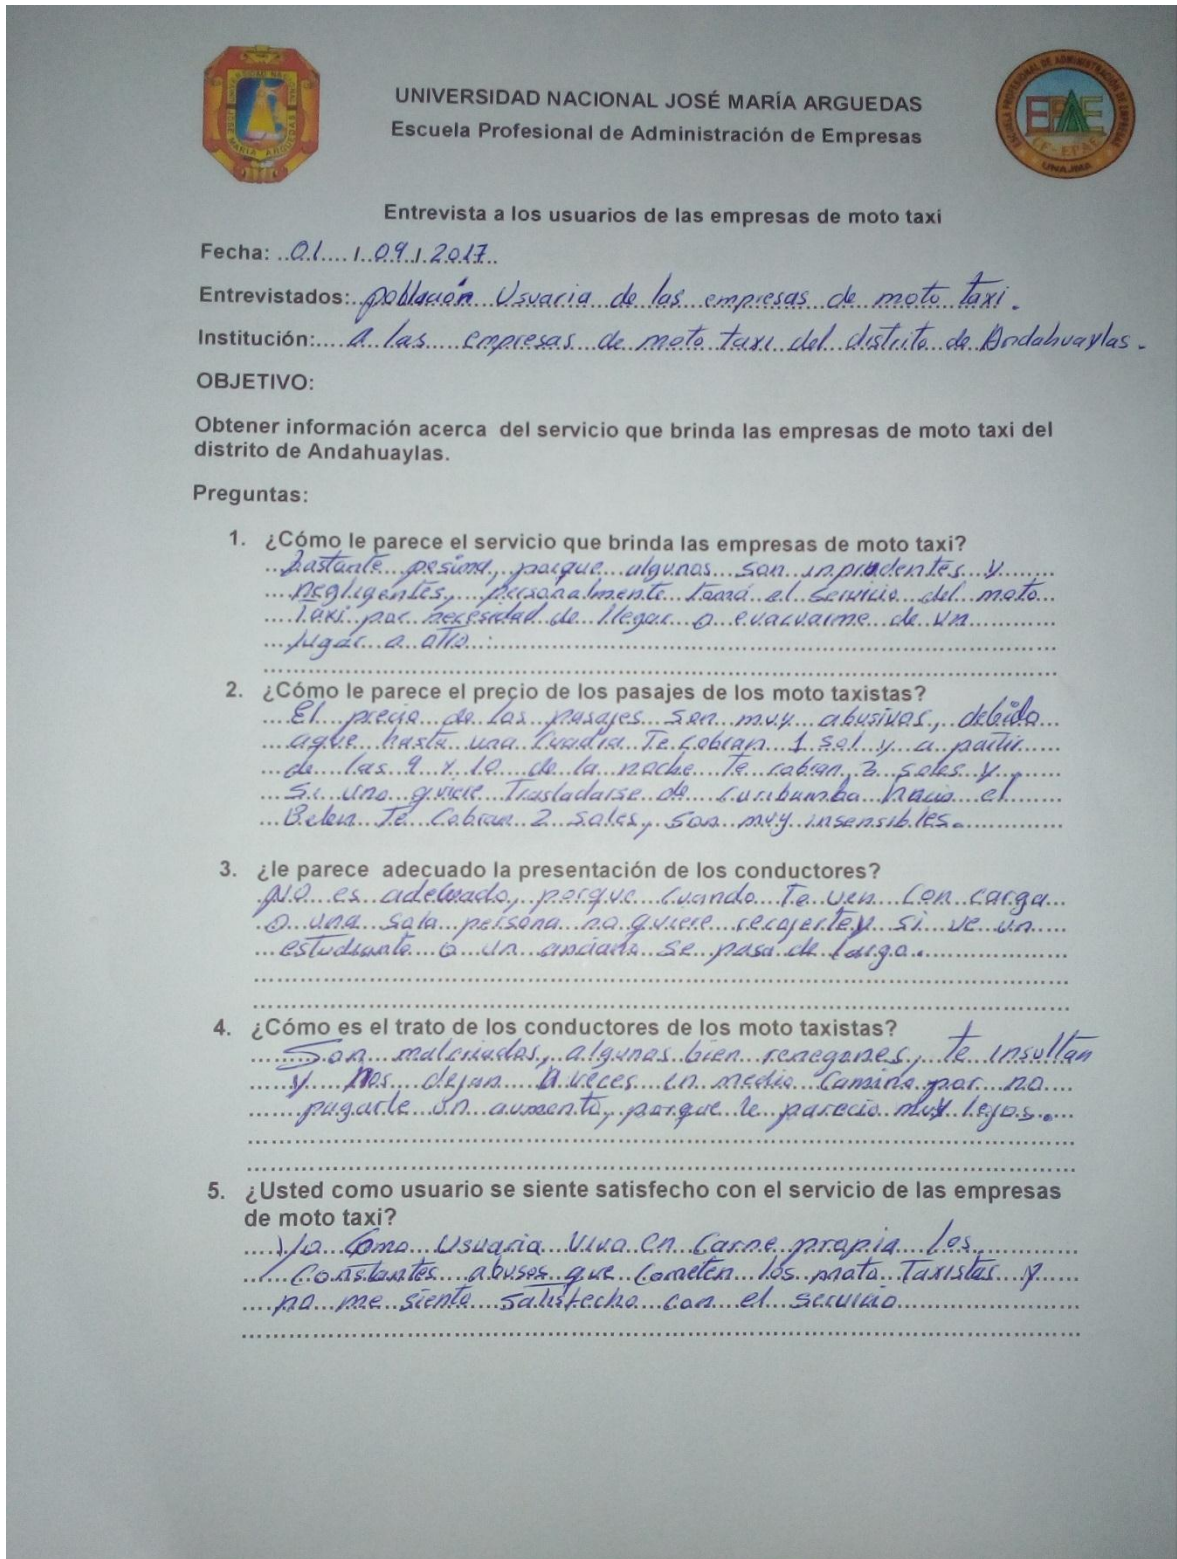 UNIVERSIDAD NACIONAL JOSÉ MARÍA ARGUEDAS
Escuela Profesional de Administración de Empresas
EPAE
CF - EPAE
UNAJMA
Entrevista a los usuarios de las empresas de moto taxi
Fecha: 01 / 09 / 2017
Entrevistados: población Usuaria de las empresas de moto taxi.
Institución: A las empresas de moto taxi del distrito de Andahuaylas.
OBJETIVO:
Obtener información acerca del servicio que brinda las empresas de moto taxi del
distrito de Andahuaylas.
Preguntas:
1. ¿Cómo le parece el servicio que brinda las empresas de moto taxi?
bastante pesima, porque algunos son inprudentes y
negligentes, personalmente tomá el servicio del moto
Taxi por necesidad de llegar o evacuarme de un
lugar a otro.
2. ¿Cómo le parece el precio de los pasajes de los moto taxistas?
El precio de los pasajes son muy abusivas, debido
aque hasta una Cuadra Te cobran 1 sol y a partir
de las 9 y 10 de la noche Te cobran 3 soles y
Si uno quiere Trasladarse de Curibamba hacia el
Belen Te Cobran 2 soles, son muy insensibles.
3. ¿le parece adecuado la presentación de los conductores?
NO es adecuado, porque Cuando Te ven Con carga
o una sola persona no quiere recojerte y si ve un
estudiante o un anciano se pasa de largo.
4. ¿Cómo es el trato de los conductores de los moto taxistas?
Son malcriados, algunos bien renegones, te insultan
y Nos dejan A veces en medio Camino por no
pagarle un aumento, porque le parecio muy lejos.
5. ¿Usted como usuario se siente satisfecho con el servicio de las empresas
de moto taxi?
Yo Como Usuaria Vivo en Carne propia Los
Constantes abusos que Cometen los moto Taxistas y
no me siento satisfecho con el servicio